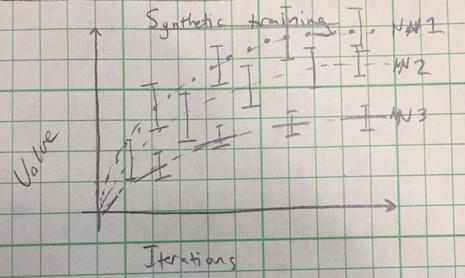 Synthetic training
NN1
NN2
NN3
Value
Iterations